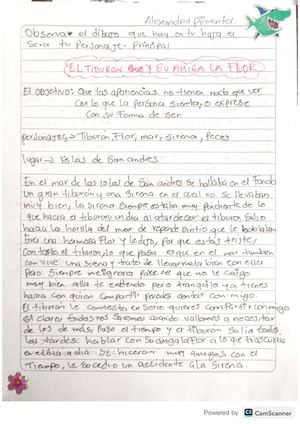 Alejandra Pimentel.
Observar el dibujo que hay en tu hoja el
Sera tu Personaje Principal
EL TIBURON Y SU AMIGA LA FLOR
El objetivo: Que las apariencias no tienen nada que ver
Con lo que la persona sienta, o exprese
Con su forma de ser.
personajes → Tiburon, Flor, mar, sirena, Peces
lugar → Islas de San andres.
En el mar de las islas de San andres se hallaba en el Fondo
Un gran tiburon y una Sirena en el cual no se llevaban
muy bien, la sirena Siempre estaba muy Pendiente de lo
que hacia el tiburon, un dia al atardecer el tiburon Salio
hacia la horilla del mar de repente Sintio que le hablaban
Era una hermosa Flor y le dijo, Por que estas triste,
Contesto el tiburon, lo que pasa es que en el mar tambien
Con vive una sirena y trato de llevarmela bien con ella
Pero Siempre me ignora Parece que no le caigo
muy bien alla te entiendo pero tranquilo ya tienes
hacia con quien Compartir puedes contar con migo.
El tiburon le Contesta en Serio quieres Compartir conmigo
Si claro todos nos Sabemos cuando vallamos a necesitar
de los de mas, Paso el tiempo y el tiburon Salia todas
las tardes hablar con Su amiga flor a lo que trascurria
en el dia a dia. Se hicieron muy amigos con el
Tiempo, le Sucedio un accidente a la Sirena.
Powered by CS CamScanner